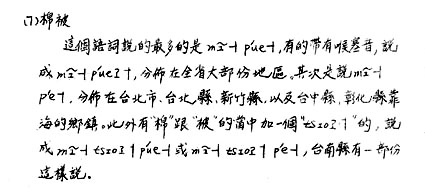 (7)棉被
這個語詞說的最多的是 mĩ˧ p'ue˧,有的帶有喉塞音,說
成 mĩ˧ p'ueʔ˧,分佈在全省大部份地區。其次是說 mĩ˧
p'e˧,分佈在台北市、台北縣、新竹縣,以及台中縣、彰化縣靠
海的鄉鎮。此外有"棉"跟"被"的當中加一個"tsioʔ˥"的,說
成 mĩ˧ tsioʔ˥ p'ue˧ 或 mĩ˧ tsioʔ˥ p'e˧,台南縣有一部份
這樣說。